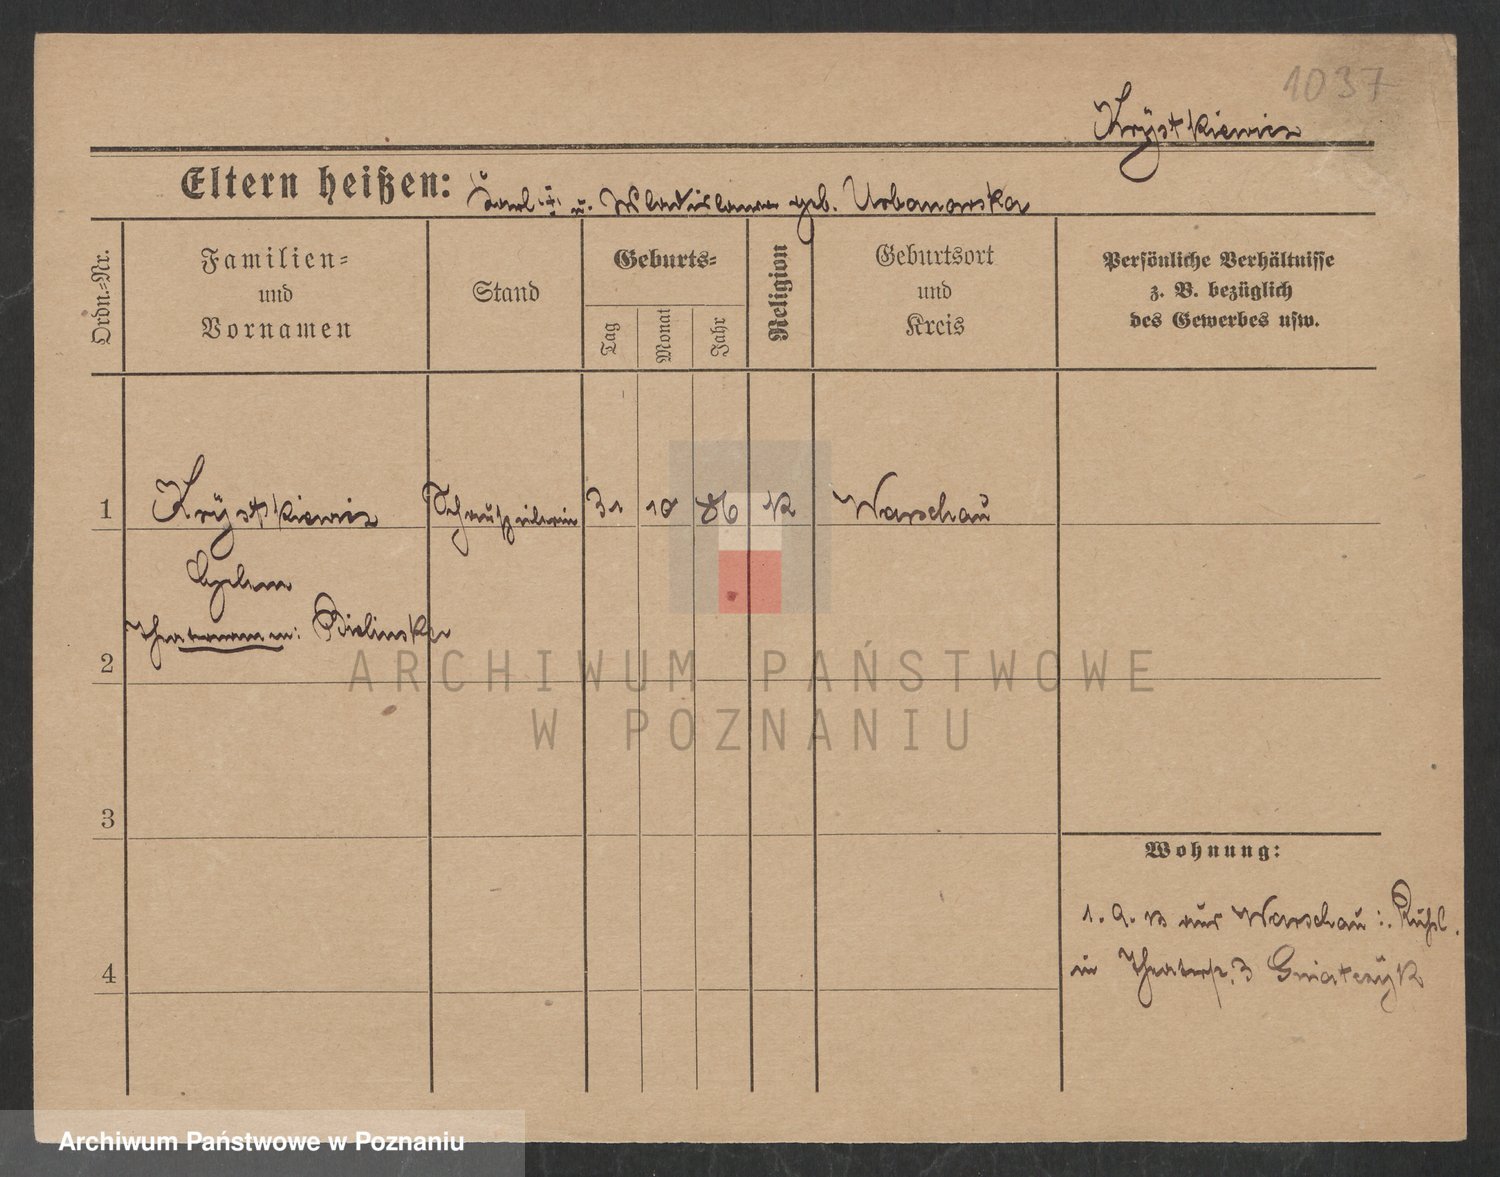 1037
Krÿstkiewicz
Eltern heißen: Karl u. Wladislawa geb. Urbanowska
Ordn.-Nr.
Familien-
und
Vornamen
Stand
Geburts-
Tag
Monat
Jahr
Religion
Geburtsort
und
Kreis
Persönliche Verhältnisse
z. B. bezüglich
des Gewerbes usw.
1 Krÿstkiewicz Schauspielerin 31 10 86 K Warschau
Theatername: Bielinska
2
ARCHIWUM PAŃSTWOWE
W POZNANIU
3
Wohnung:
1. 9. 13 aus Warschau i. Rußl.
4
in Theaterstr. 3 Gniatczÿk
Archiwum Państwowe w Poznaniu